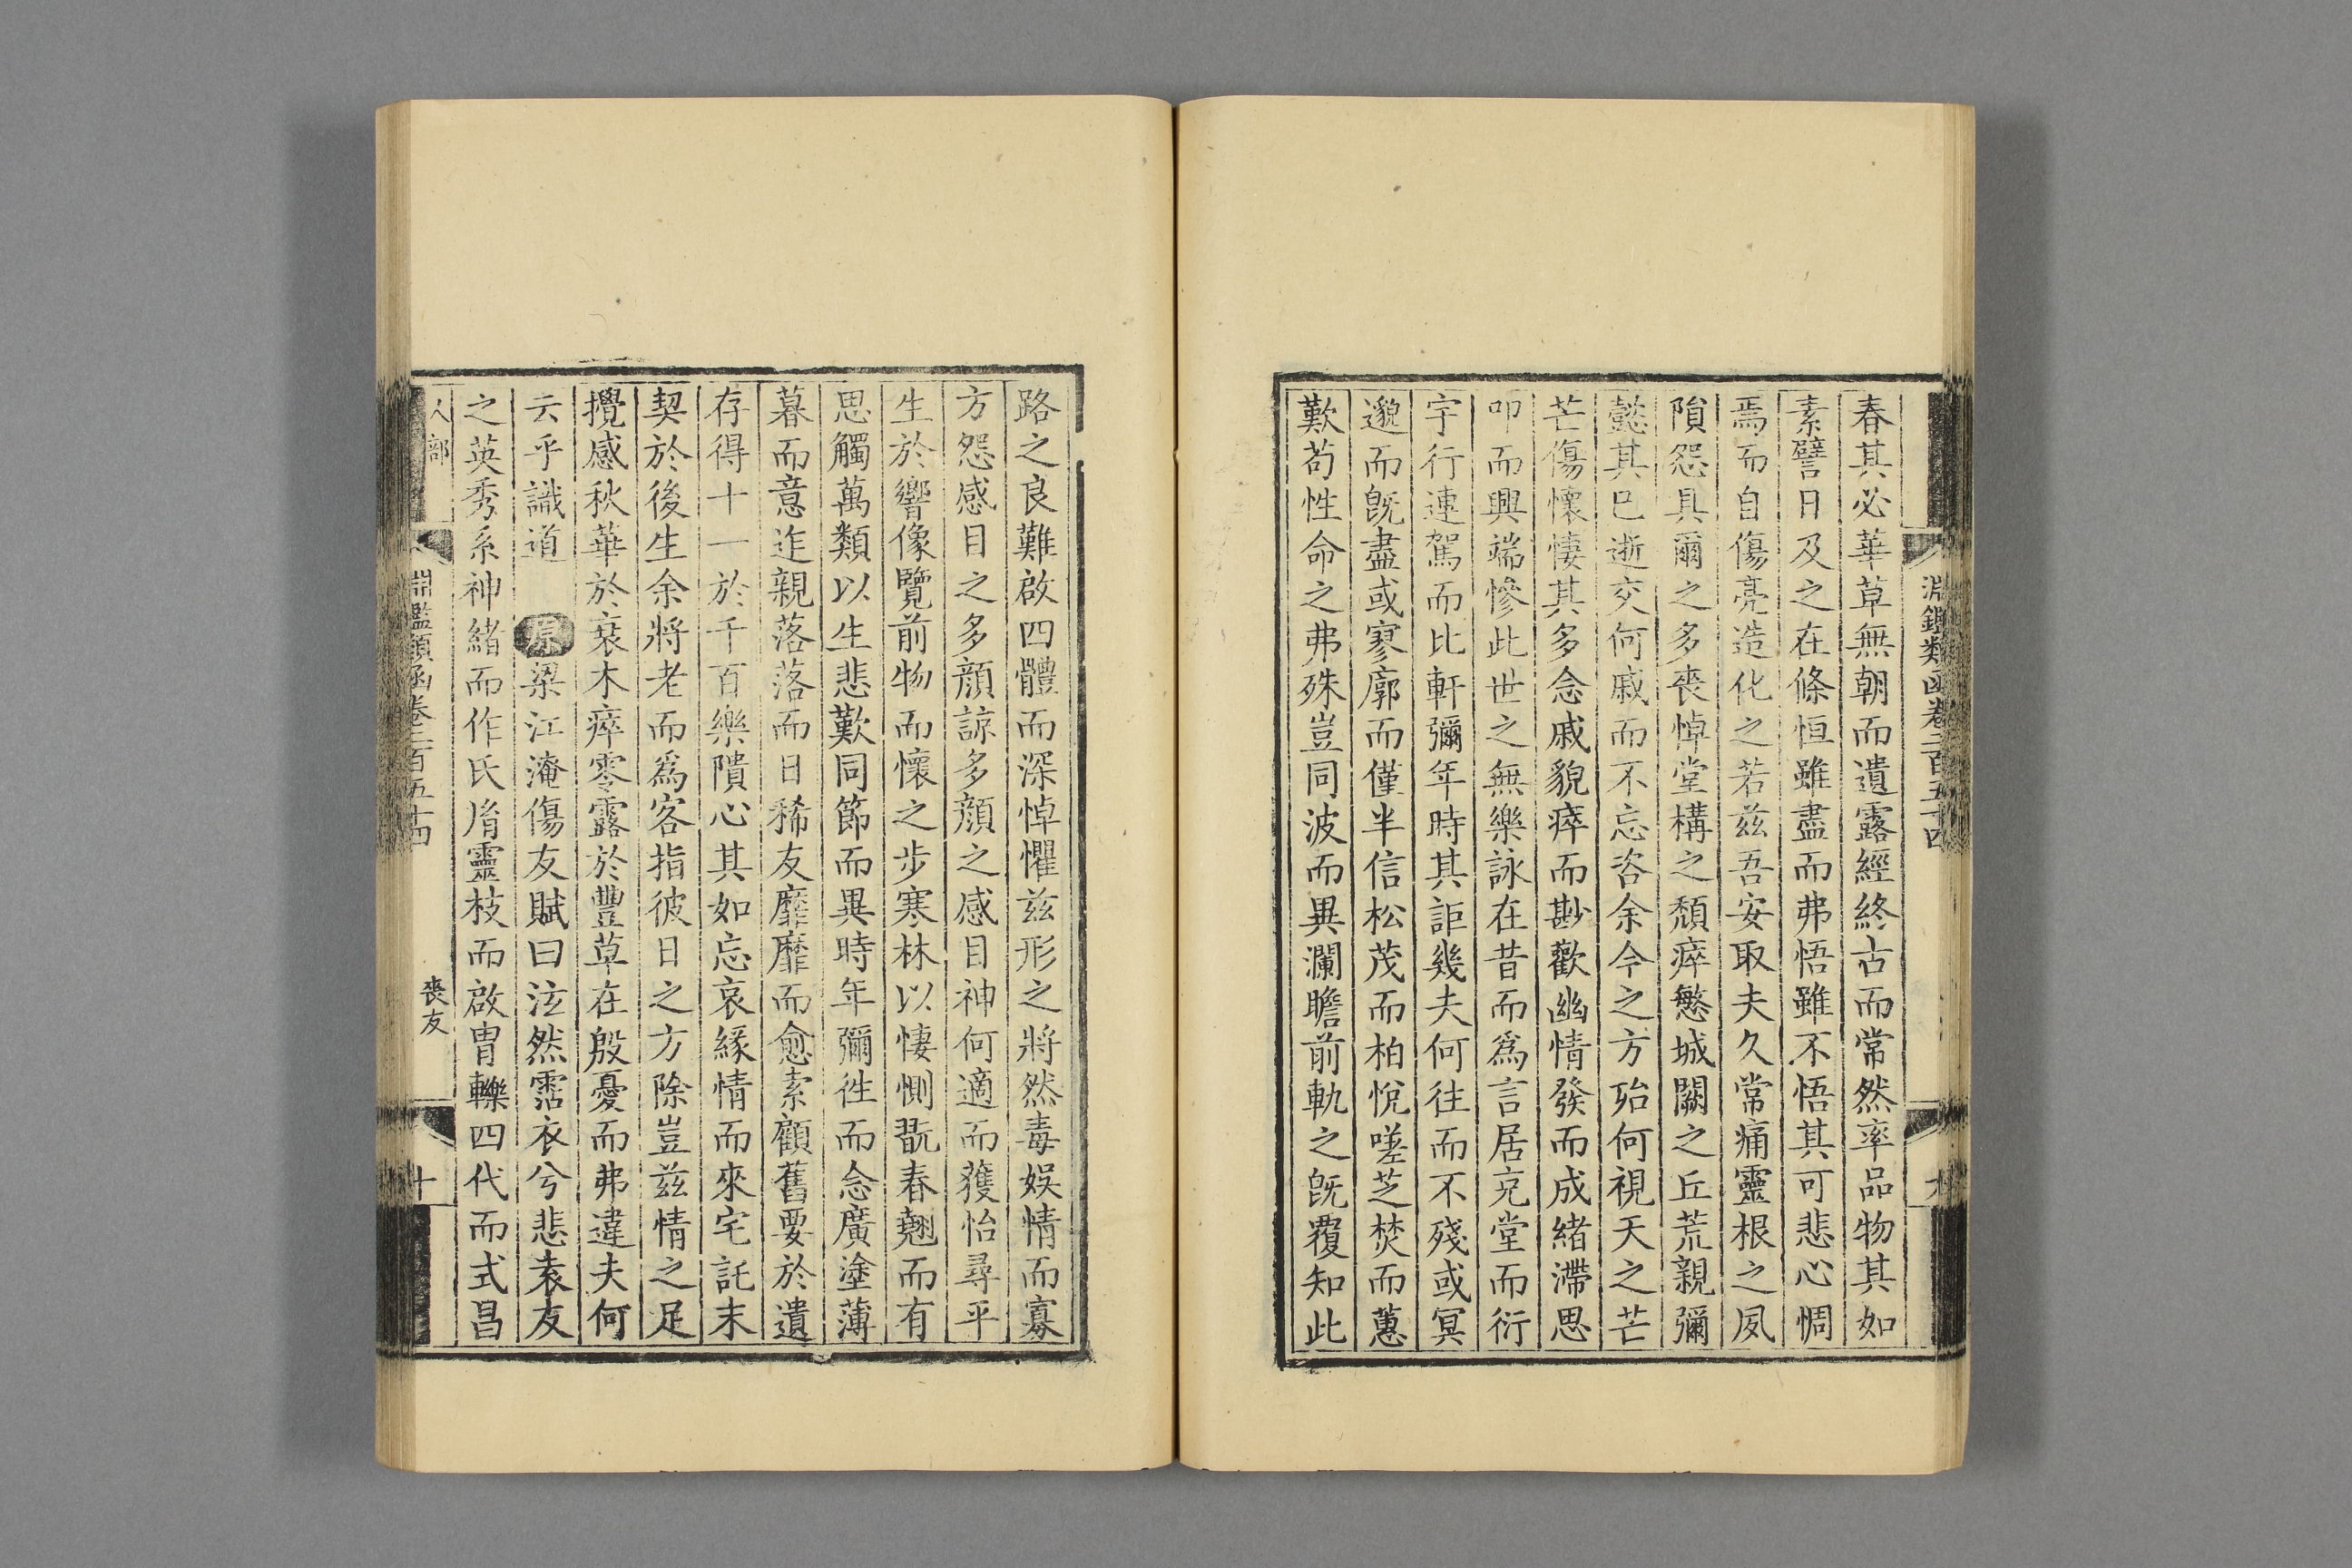 淵鑑類函卷二百五十四
春其必華草無朝而遺露經終古而常然率品物其如
素譬日及之在條恒雖盡而弗悟雖不悟其可悲心惆
焉而自傷亮造化之若茲吾安取夫久常痛靈根之夙
隕怨具爾之多喪悼堂構之頹瘁慜城闕之丘荒親彌
懿其已逝交何戚而不忘咨余今之方殆何視天之芒
芒傷懷悽其多念戚貌瘁而尠歡幽情發而成緒滯思
叩而興端慘此世之無樂詠在昔而為言居充堂而衍
宇行連駕而比軒彌年時其詎幾夫何往而不殘或冥
邈而既盡或寥廓而僅半信松茂而柏悅嗟芝焚而蕙
歎苟性命之弗殊豈同波而異瀾瞻前軌之既覆知此
路之良難啟四體而深悼懼茲形之將然毒娛情而寡
方怨感目之多顏諒多顏之感目神何適而獲怡尋平
生於響像覽前物而懷之步寒林以悽惻翫春翹而有
思觸萬類以生悲歎同節而異時年彌往而念廣塗薄
暮而意迮親落落而日稀友靡靡而愈索顧舊要於遺
存得十一於千百樂隤心其如忘哀緣情而來宅託末
契於後生余將老而為客指彼日之方除豈茲情之足
攪感秋華於衰木瘁零露於豐草在殷憂而弗違夫何
云乎識道 原 梁江淹傷友賦曰泫然霑衣兮悲袁友
之英秀系神緒而作氏胤靈枝而啟冑轢四代而式昌
人部
淵鑑類函卷二百五十四
喪友
十